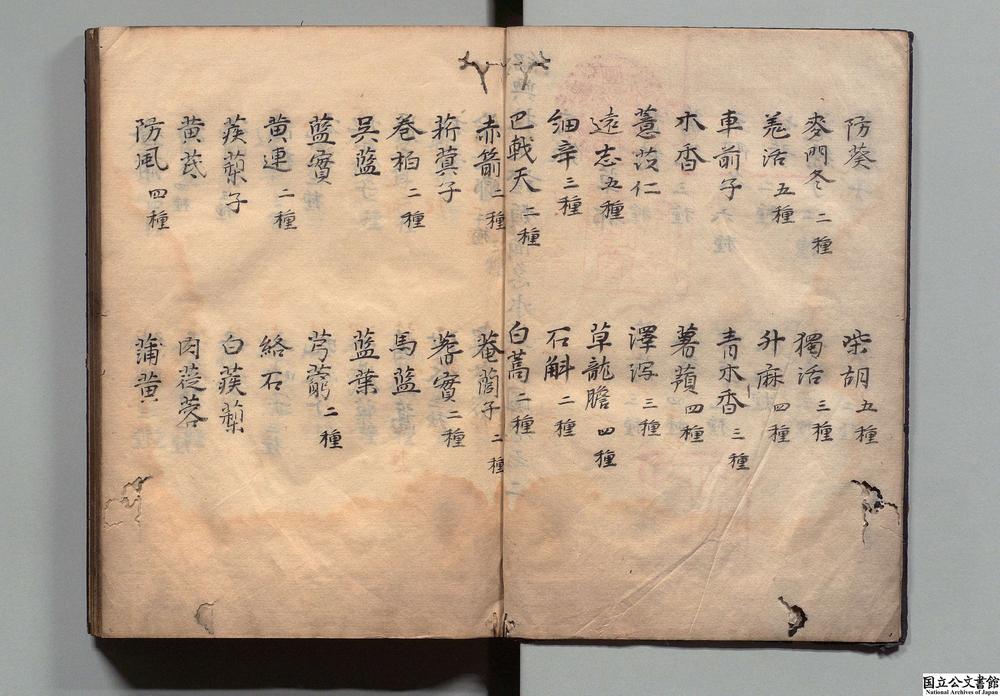 防葵 柴胡 五種
麥門冬 二種 獨活 三種
羗活 五種 升麻 四種
車前子 青木香 三種
木香 薯蕷 四種
薏苡仁 澤瀉 三種
遠志 五種 草龍膽 四種
細辛 三種 石斛 二種
巴戟天 二種 白蒿 二種
赤箭 二種 菴䕡子 二種
菥蓂子 蓍實 二種
卷柏 二種 馬藍
吳藍 藍葉
藍實 芎藭 二種
黄連 二種 絡石
蒺蔾子 白蒺蔾
黄芪 肉蓯蓉
防風 四種 蒲黄
国立公文書館
National Archives of Japan